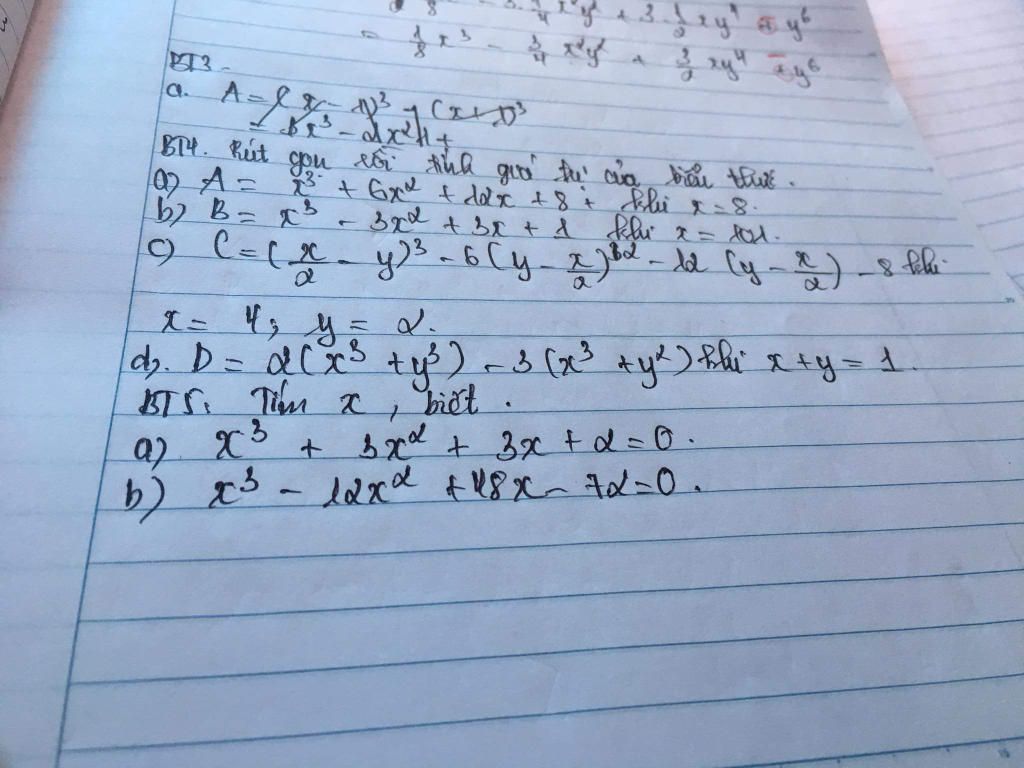 8 - 3. 1/4 x²y² + 3. 1/2 xy⁴ + y⁶
= 1/8 x³ - 3/4 x²y² + 3/2 xy⁴ + y⁶
BT3.
a. A = (x - 1)³ - (x + 1)³
BT4. Rút gọn rồi tính giá trị của biểu thức.
a) A = x³ + 6x² + 12x + 8 khi x = 8.
b) B = x³ - 3x² + 3x + 1 khi x = 101.
c) C = (x/2 - y)³ - 6(y - x/2)² - 12 (y - x/2) - 8 khi
x = 4; y = 2.
d). D = 2(x³ + y³) - 3(x³ + y²) khi x + y = 1.
BT5: Tìm x, biết.
a) x³ + 3x² + 3x + 2 = 0.
b) x³ - 12x² + 48x - 72 = 0.